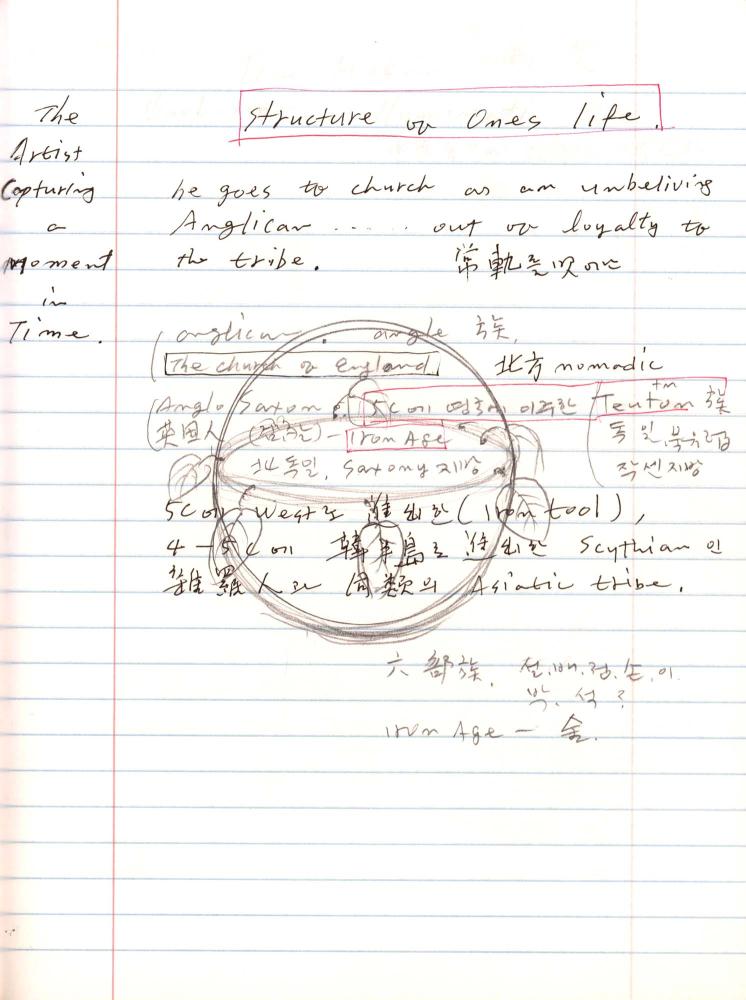 The
Artist
Capturing
a
moment
in
Time.
Structure of Ones life.
he goes to church as an unbeliving
Anglican ...... out of loyalty to
the tribe. 常軌를
( anglican. angle 족,
The church of England 北方 nomadic
(Anglo Saxon 5C에 영국에 이주한 Teuton 족
英国人 - Iron Age 독일, 북유럽
北 독일, Saxony 지방 작센지방
5C에 West로 進出한 (Iron tool),
4-5C에 韓半島로 進出한 Scythian 인
羅人과 同類의 Asiatic tribe.
六部族, 설.배.정.손.이.
박. 석?
Iron Age - 金.